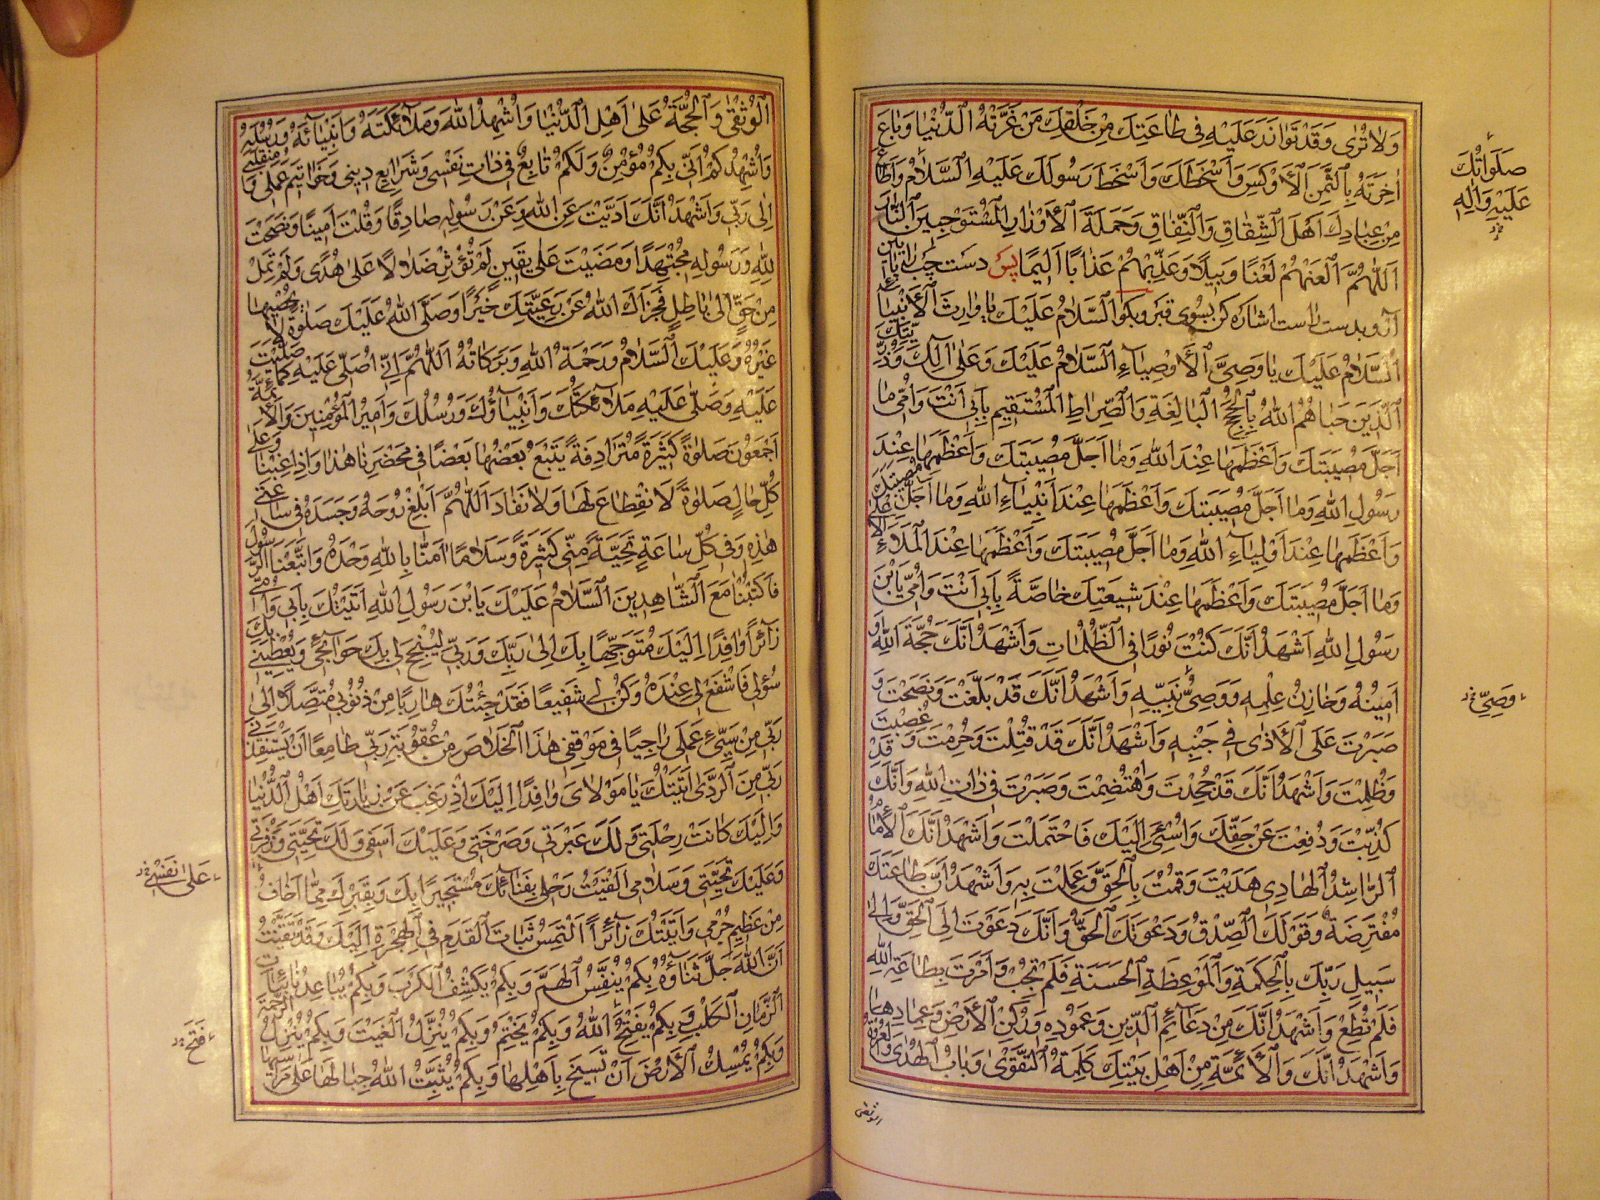 وَلَا تُرٰى وَقَدْ تَوَازَرَ عَلَيْهِ فِي طَاعَتِكَ مِنْ خَلْقِكَ مَنْ غَرَّتْهُ الدُّنْيَا وَبَاعَ
اٰخِرَتَهُ بِالثَّمَنِ الْاَوْكَسِ وَاَسْخَطَكَ وَاَسْخَطَ رَسُولَكَ عَلَيْهِ السَّلَامُ وَاَطَاعَ
مِنْ عِبَادِكَ اَهْلَ الشِّقَاقِ وَالنِّفَاقِ وَحَمَلَةَ الْاَوْزَارِ الْمُسْتَوْجِبِينَ النَّارَ
اَللّٰهُمَّ الْعَنْهُمْ لَعْنًا وَبِيلًا وَعَذِّبْهُمْ عَذَابًا اَلِيمًا پس دست چپ را
و بدست راست اشاره کن بسوی قبر و بگو اَلسَّلَامُ عَلَيْكَ يَا وَارِثَ الْاَنْبِيَاءِ
اَلسَّلَامُ عَلَيْكَ يَا وَصِيَّ الْاَوْصِيَاءِ اَلسَّلَامُ عَلَيْكَ وَعَلٰى اٰلِكَ وَذُرِّيَّتِكَ
الَّذِينَ حَبَاهُمُ اللّٰهُ بِالْحُجَجِ الْبَالِغَةِ وَالصِّرَاطِ الْمُسْتَقِيمِ بِاَبِي اَنْتَ وَاُمِّي مَا
اَجَلَّ مُصِيبَتَكَ وَاَعْظَمَهَا عِنْدَ اللّٰهِ وَمَا اَجَلَّ مُصِيبَتَكَ وَاَعْظَمَهَا عِنْدَ
رَسُولِ اللّٰهِ وَمَا اَجَلَّ مُصِيبَتَكَ وَاَعْظَمَهَا عِنْدَ اَنْبِيَاءِ اللّٰهِ وَمَا اَجَلَّ مُصِيبَتَكَ
وَاَعْظَمَهَا عِنْدَ اَوْلِيَاءِ اللّٰهِ وَمَا اَجَلَّ مُصِيبَتَكَ وَاَعْظَمَهَا عِنْدَ الْمَلَاءِ الْاَعْلٰى
وَمَا اَجَلَّ مُصِيبَتَكَ وَاَعْظَمَهَا عِنْدَ شِيعَتِكَ خَاصَّةً بِاَبِي اَنْتَ وَاُمِّي يَابْنَ
رَسُولِ اللّٰهِ اَشْهَدُ اَنَّكَ كُنْتَ نُورًا فِي الظُّلُمَاتِ وَاَشْهَدُ اَنَّكَ حُجَّةُ اللّٰهِ وَ
اَمِينُهُ وَخَازِنُ عِلْمِهِ وَوَصِيُّ نَبِيِّهِ وَاَشْهَدُ اَنَّكَ قَدْ بَلَّغْتَ وَنَصَحْتَ وَ
صَبَرْتَ عَلَى الْاَذٰى فِي جَنْبِهِ وَاَشْهَدُ اَنَّكَ قَدْ قُتِلْتَ وَحُرِمْتَ وَغُصِبْتَ
وَظُلِمْتَ وَاَشْهَدُ اَنَّكَ قَدْ جُحِدْتَ وَاهْتُضِمْتَ وَصَبَرْتَ فِي ذَاتِ اللّٰهِ وَاَنَّكَ قَدْ
كُذِّبْتَ وَدُفِعْتَ عَنْ حَقِّكَ وَاُسِيءَ اِلَيْكَ فَاحْتَمَلْتَ وَاَشْهَدُ اَنَّكَ الْاِمَامُ
الرَّاشِدُ الْهَادِي هَدَيْتَ وَقُمْتَ بِالْحَقِّ وَعَمِلْتَ بِهِ وَاَشْهَدُ اَنَّ طَاعَتَكَ
مُفْتَرَضَةٌ وَقَوْلَكَ الصِّدْقُ وَدَعْوَتَكَ الْحَقُّ وَاَنَّكَ دَعَوْتَ اِلَى الْحَقِّ وَاِلٰى
سَبِيلِ رَبِّكَ بِالْحِكْمَةِ وَالْمَوْعِظَةِ الْحَسَنَةِ فَلَمْ تُجَبْ وَاَمَرْتَ بِطَاعَةِ اللّٰهِ
فَلَمْ تُطَعْ وَاَشْهَدُ اَنَّكَ مِنْ دَعَائِمِ الدِّينِ وَعَمُودِهِ وَرُكْنِ الْاَرْضِ وَعِمَادِهَا
وَاَشْهَدُ اَنَّكَ وَالْاَئِمَّةَ مِنْ اَهْلِ بَيْتِكَ كَلِمَةُ التَّقْوٰى وَبَابُ الْهُدٰى وَالْعُرْوَةُ
صَلَوَاتُكَ
عَلَيْهِ وَاٰلِهِ
وَصِيِّ
الوثقى
الْوُثْقٰى وَالْحُجَّةُ عَلٰى اَهْلِ الدُّنْيَا وَاُشْهِدُ اللّٰهَ وَمَلَائِكَتَهُ وَاَنْبِيَائَهُ وَرُسُلَهُ
وَاُشْهِدُكُمْ اَنِّي بِكُمْ مُؤْمِنٌ وَلَكُمْ تَابِعٌ فِي ذَاتِ نَفْسِي وَشَرَايِعِ دِينِي وَخَوَاتِيمِ عَمَلِي وَمُنْقَلَبِي
اِلٰى رَبِّي وَاَشْهَدُ اَنَّكَ اَدَّيْتَ عَنِ اللّٰهِ وَعَنْ رَسُولِهِ صَادِقًا وَقُلْتَ اَمِينًا وَنَصَحْتَ
لِلّٰهِ وَرَسُولِهِ مُجْتَهِدًا وَمَضَيْتَ عَلٰى يَقِينٍ لَمْ تُؤْثِرْ ضَلَالًا عَلٰى هُدًى وَلَمْ تَمِلْ
مِنْ حَقٍّ اِلٰى بَاطِلٍ فَجَزَاكَ اللّٰهُ عَنْ رَعِيَّتِكَ خَيْرًا وَصَلَّى اللّٰهُ عَلَيْكَ صَلٰوةً لَا يُحْصِيهَا
غَيْرُهُ وَعَلَيْكَ السَّلَامُ وَرَحْمَةُ اللّٰهِ وَبَرَكَاتُهُ اَللّٰهُمَّ اِنِّي اُصَلِّي عَلَيْهِ كَمَا صَلَّيْتَ
عَلَيْهِ وَصَلّٰى عَلَيْهِ مَلَائِكَتُكَ وَاَنْبِيَاؤُكَ وَرُسُلُكَ وَاَمِيرُ الْمُؤْمِنِينَ وَالْاَئِمَّةُ
اَجْمَعُونَ صَلٰوةً كَثِيرَةً مُتَرَادِفَةً يَتْبَعُ بَعْضُهَا بَعْضًا فِي مَحْضَرِنَا هٰذَا وَاِذَا غِبْنَا وَعَلٰى
كُلِّ حَالٍ صَلٰوةً لَا انْقِطَاعَ لَهَا وَلَا نَفَادَ اَللّٰهُمَّ اَبْلِغْ رُوحَهُ وَجَسَدَهُ فِي سَاعَتِي
هٰذِهِ وَفِي كُلِّ سَاعَةٍ تَحِيَّةً مِنِّي كَثِيرَةً وَسَلَامًا اٰمَنَّا بِاللّٰهِ وَحْدَهُ وَاتَّبَعْنَا الرَّسُولَ
فَاكْتُبْنَا مَعَ الشَّاهِدِينَ اَلسَّلَامُ عَلَيْكَ يَابْنَ رَسُولِ اللّٰهِ اَتَيْتُكَ بِاَبِي وَاُمِّي
زَائِرًا وَافِدًا اِلَيْكَ مُتَوَجِّهًا بِكَ اِلٰى رَبِّكَ وَرَبِّي لِيُنْجِحَ لِي بِكَ حَوَائِجِي وَيُعْطِيَنِي بِكَ
سُؤْلِي فَاشْفَعْ لِي عِنْدَهُ وَكُنْ لِي شَفِيعًا فَقَدْ جِئْتُكَ هَارِبًا مِنْ ذُنُوبِي مُتَنَصِّلًا اِلٰى
رَبِّي مِنْ سَيِّئِ عَمَلِي رَاجِيًا فِي مَوْقِفِي هٰذَا الْخَلَاصَ مِنْ عُقُوبَةِ رَبِّي طَامِعًا اَنْ يَسْتَنْقِذَنِي
رَبِّي مِنَ الرَّدٰى اَتَيْتُكَ يَا مَوْلَايَ وَافِدًا اِلَيْكَ اِذْ رَغِبَ عَنْ زِيَارَتِكَ اَهْلُ الدُّنْيَا
وَاِلَيْكَ كَانَتْ رِحْلَتِي وَلَكَ عَبْرَتِي وَصَرْخَتِي وَعَلَيْكَ اَسَفِي وَلَكَ نَحِيبِي وَزَفْرَتِي
وَعَلَيْكَ تَحِيَّتِي وَسَلَامِي اَلْقَيْتُ رَحْلِي بِفِنَائِكَ مُسْتَجِيرًا بِكَ وَبِقَبْرِكَ مِمَّا اَخَافُ
مِنْ عَظِيمِ جُرْمِي وَاَتَيْتُكَ زَائِرًا اَلْتَمِسُ ثَبَاتَ الْقَدَمِ فِي الْهِجْرَةِ اِلَيْكَ وَقَدْ تَيَقَّنْتُ
اَنَّ اللّٰهَ جَلَّ ثَنَاؤُهُ بِكُمْ يُنَفِّسُ الْهَمَّ وَبِكُمْ يَكْشِفُ الْكَرْبَ وَبِكُمْ يُبَاعِدُ نَائِبَاتِ
الزَّمَانِ الْكَلِبِ وَبِكُمْ يَفْتَحُ اللّٰهُ وَبِكُمْ يَخْتِمُ وَبِكُمْ يُنَزِّلُ الْغَيْثَ وَبِكُمْ يُنْزِلُ الرَّحْمَةَ
وَبِكُمْ يُمْسِكُ الْاَرْضَ اَنْ تَسِيخَ بِاَهْلِهَا وَبِكُمْ يُثَبِّتُ اللّٰهُ جِبَالَهَا عَلٰى مَرَاسِيهَا
عَلٰى نَفْسِي
فَتَحَ